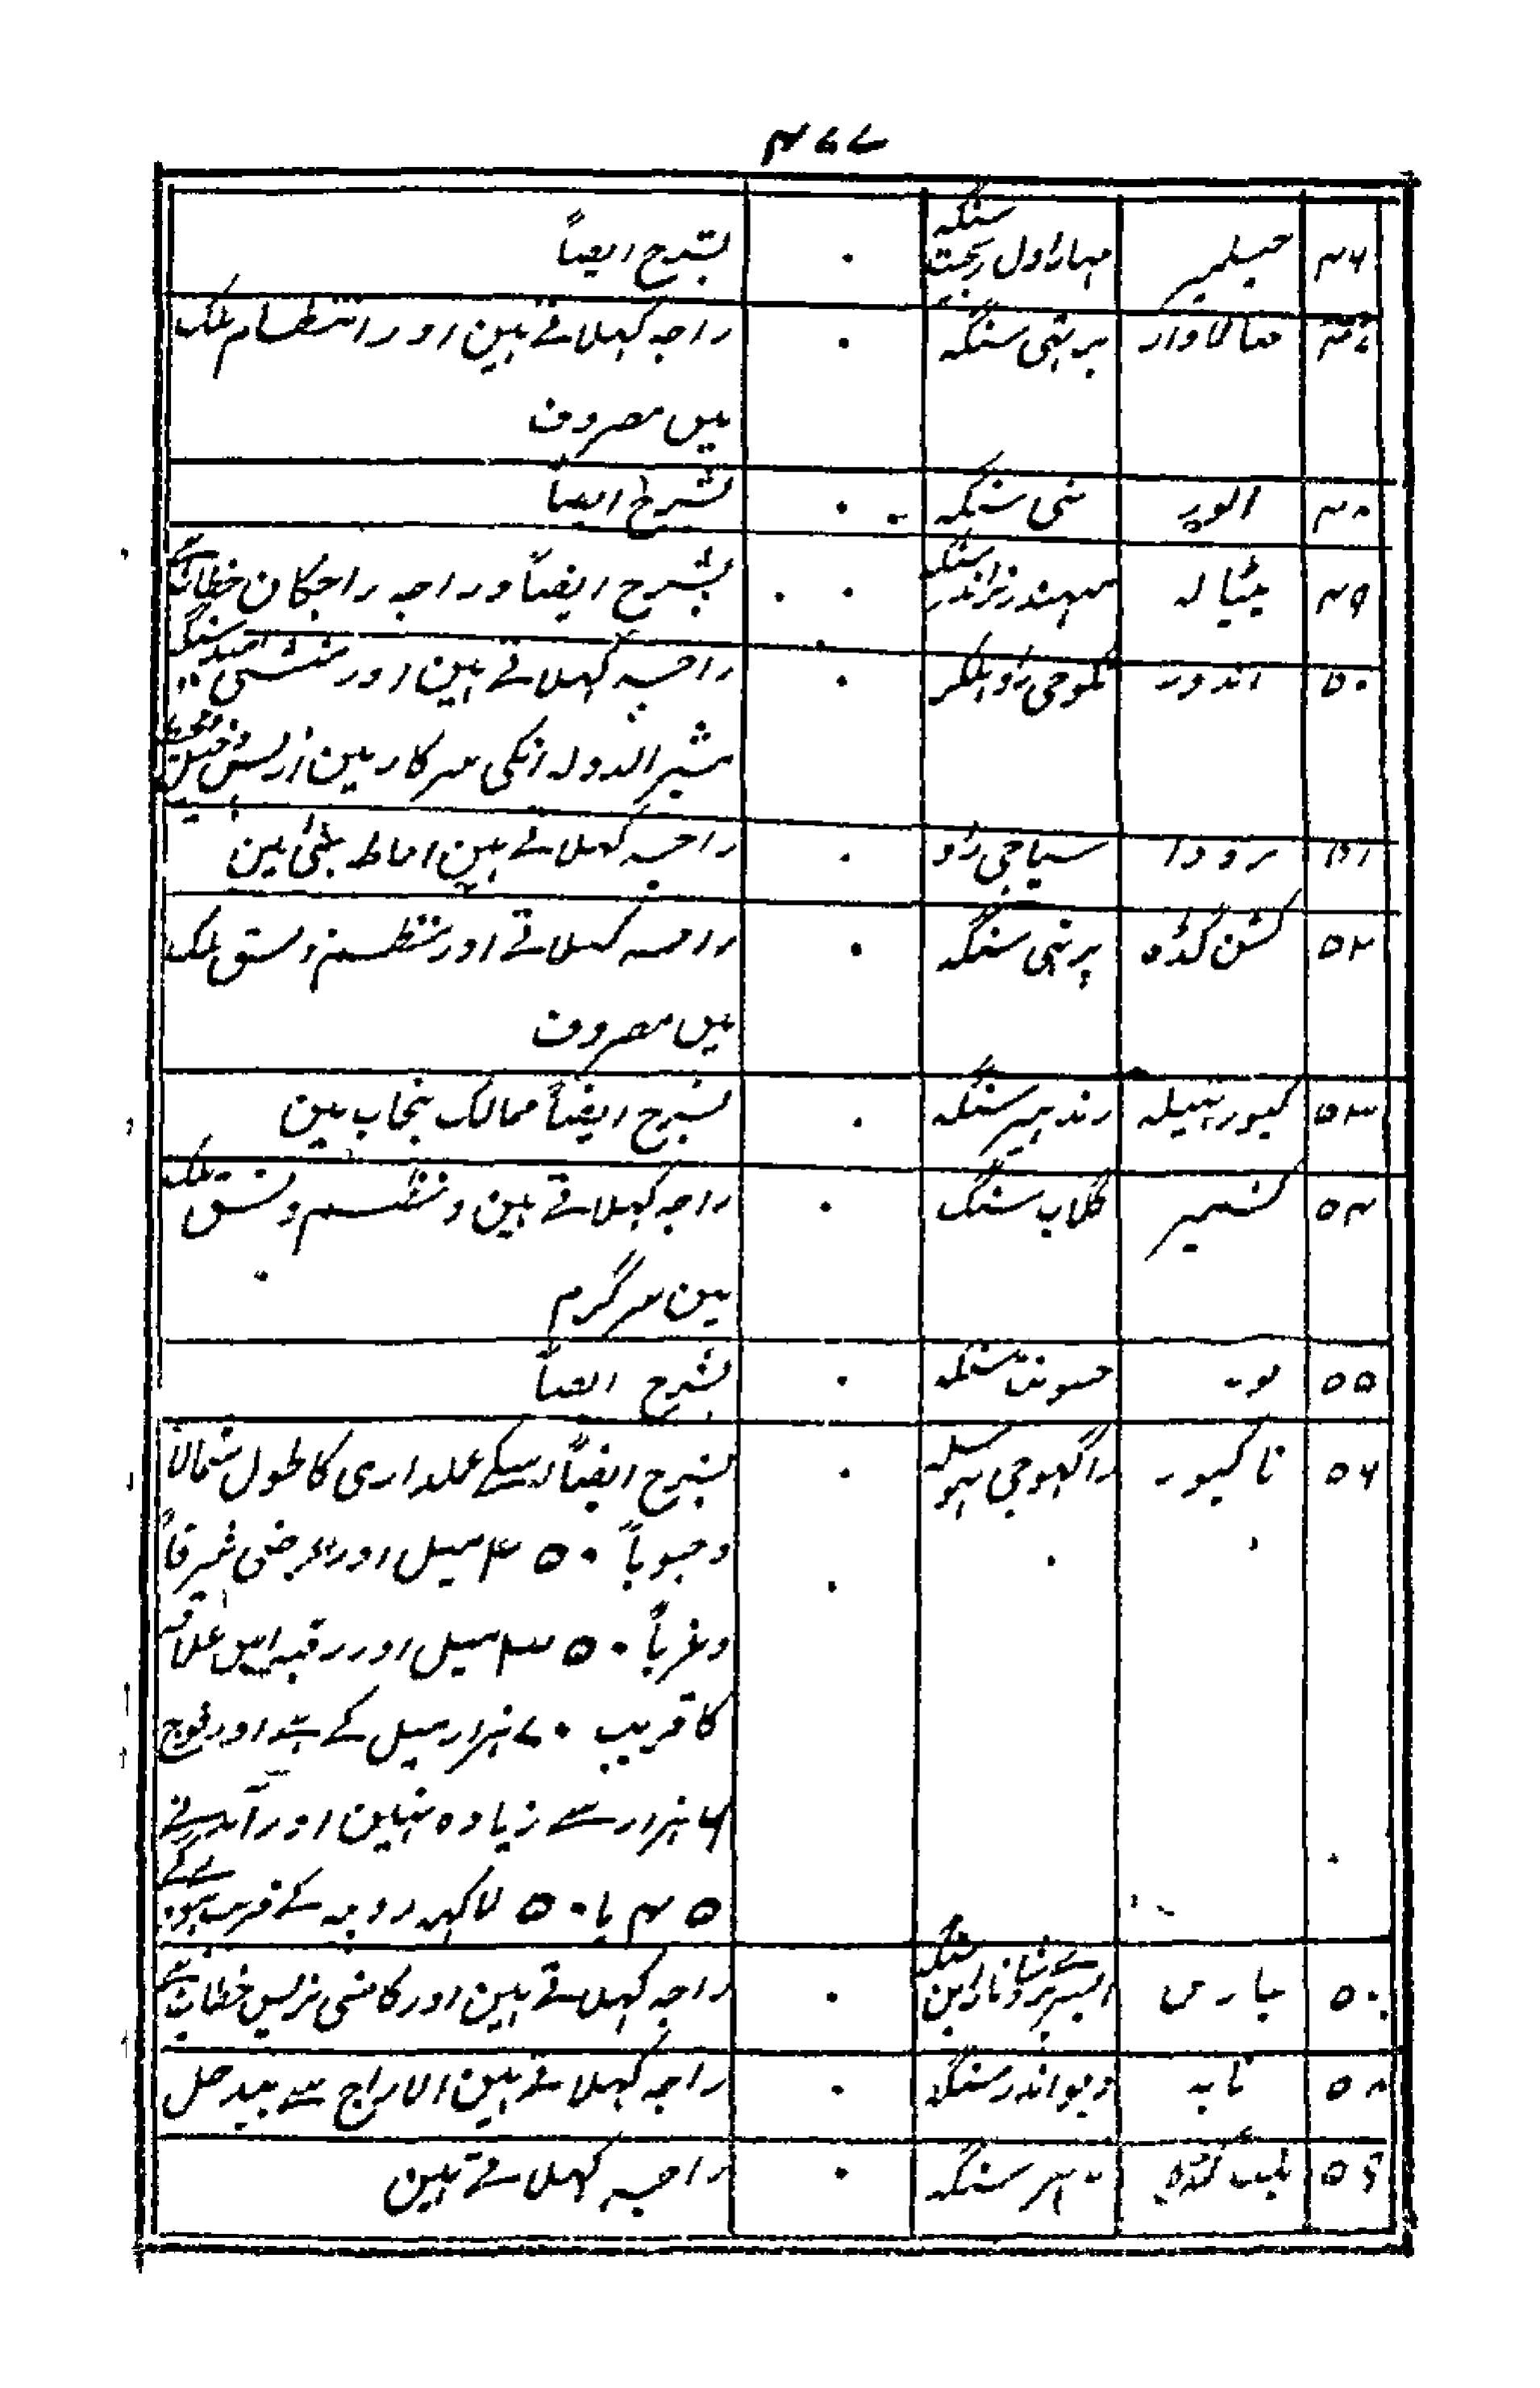 ۴۷۷
۴۶ جیسلمیر مہاراول رنجیت سنگہ ۰ بشرح ایضاً
۴۷ جہالاوار پرتہی سنگہ ۰ راجہ کہلاتے ہین اور انتظام ملک
میں مصروف
۴۸ الور بنی سنگہ ۰ بشرح ایضاً
۴۹ پٹیالہ مہندر نرائندر سنگہ ۰ بشرح ایضاً و راجہ راجگان خطاب
۵۰ اندور تکوجی راو ہلکر ۰ راجہ کہلاتے ہین اور منشی امید سنگہ
مشیر الدولہ انکی سرکار مین از بس
۵۱ برودا سیاجی راو ۰ راجہ کہلاتے ہین احاطہ بمبئی مین
۵۲ کشن گڈہ پرتہی سنگہ ۰ راجہ کہلاتے اور نظم و نسق ملک
میں مصروف
۵۳ کپورتہیلہ رندہیر سنگہ ۰ بشرح ایضاً ممالک پنجاب مین
۵۴ کشمیر گلاب سنگ ۰ راجہ کہلاتے ہین و نظم و نسق ملک
مین سرگرم
۵۵ جسونت سنگہ ۰ بشرح ایضاً
۵۶ ناگپور راگہوجی بہوسلہ ۰ بشرح ایضاً اسکے عملداری کا طول شمالاً
و جنوباً ۴۵۰ میل اور عرض شرقاً
و غرباً ۳۵۰ میل اور رقبہ اس علاقہ
کا قریب ۷۰ ہزار میل کے ہے اور فوج
۶ ہزار سے زیادہ نہین اور آمدنے
۴۵ یا ۵۰ لاکہہ روپیہ کے قریب ہوگے
۵۷ بنارس ایسرے پرشاد نراین سنگہ ۰ راجہ کہلاتے ہین اور کاشی نریس خطاب ہے
۵۸ نابہ دیواندر سنگہ ۰ راجہ کہلاتے ہین الا راج سے بیدخل
۵۹ بلب گڈہ ناہر سنگہ ۰ راجہ کہلاتے ہین